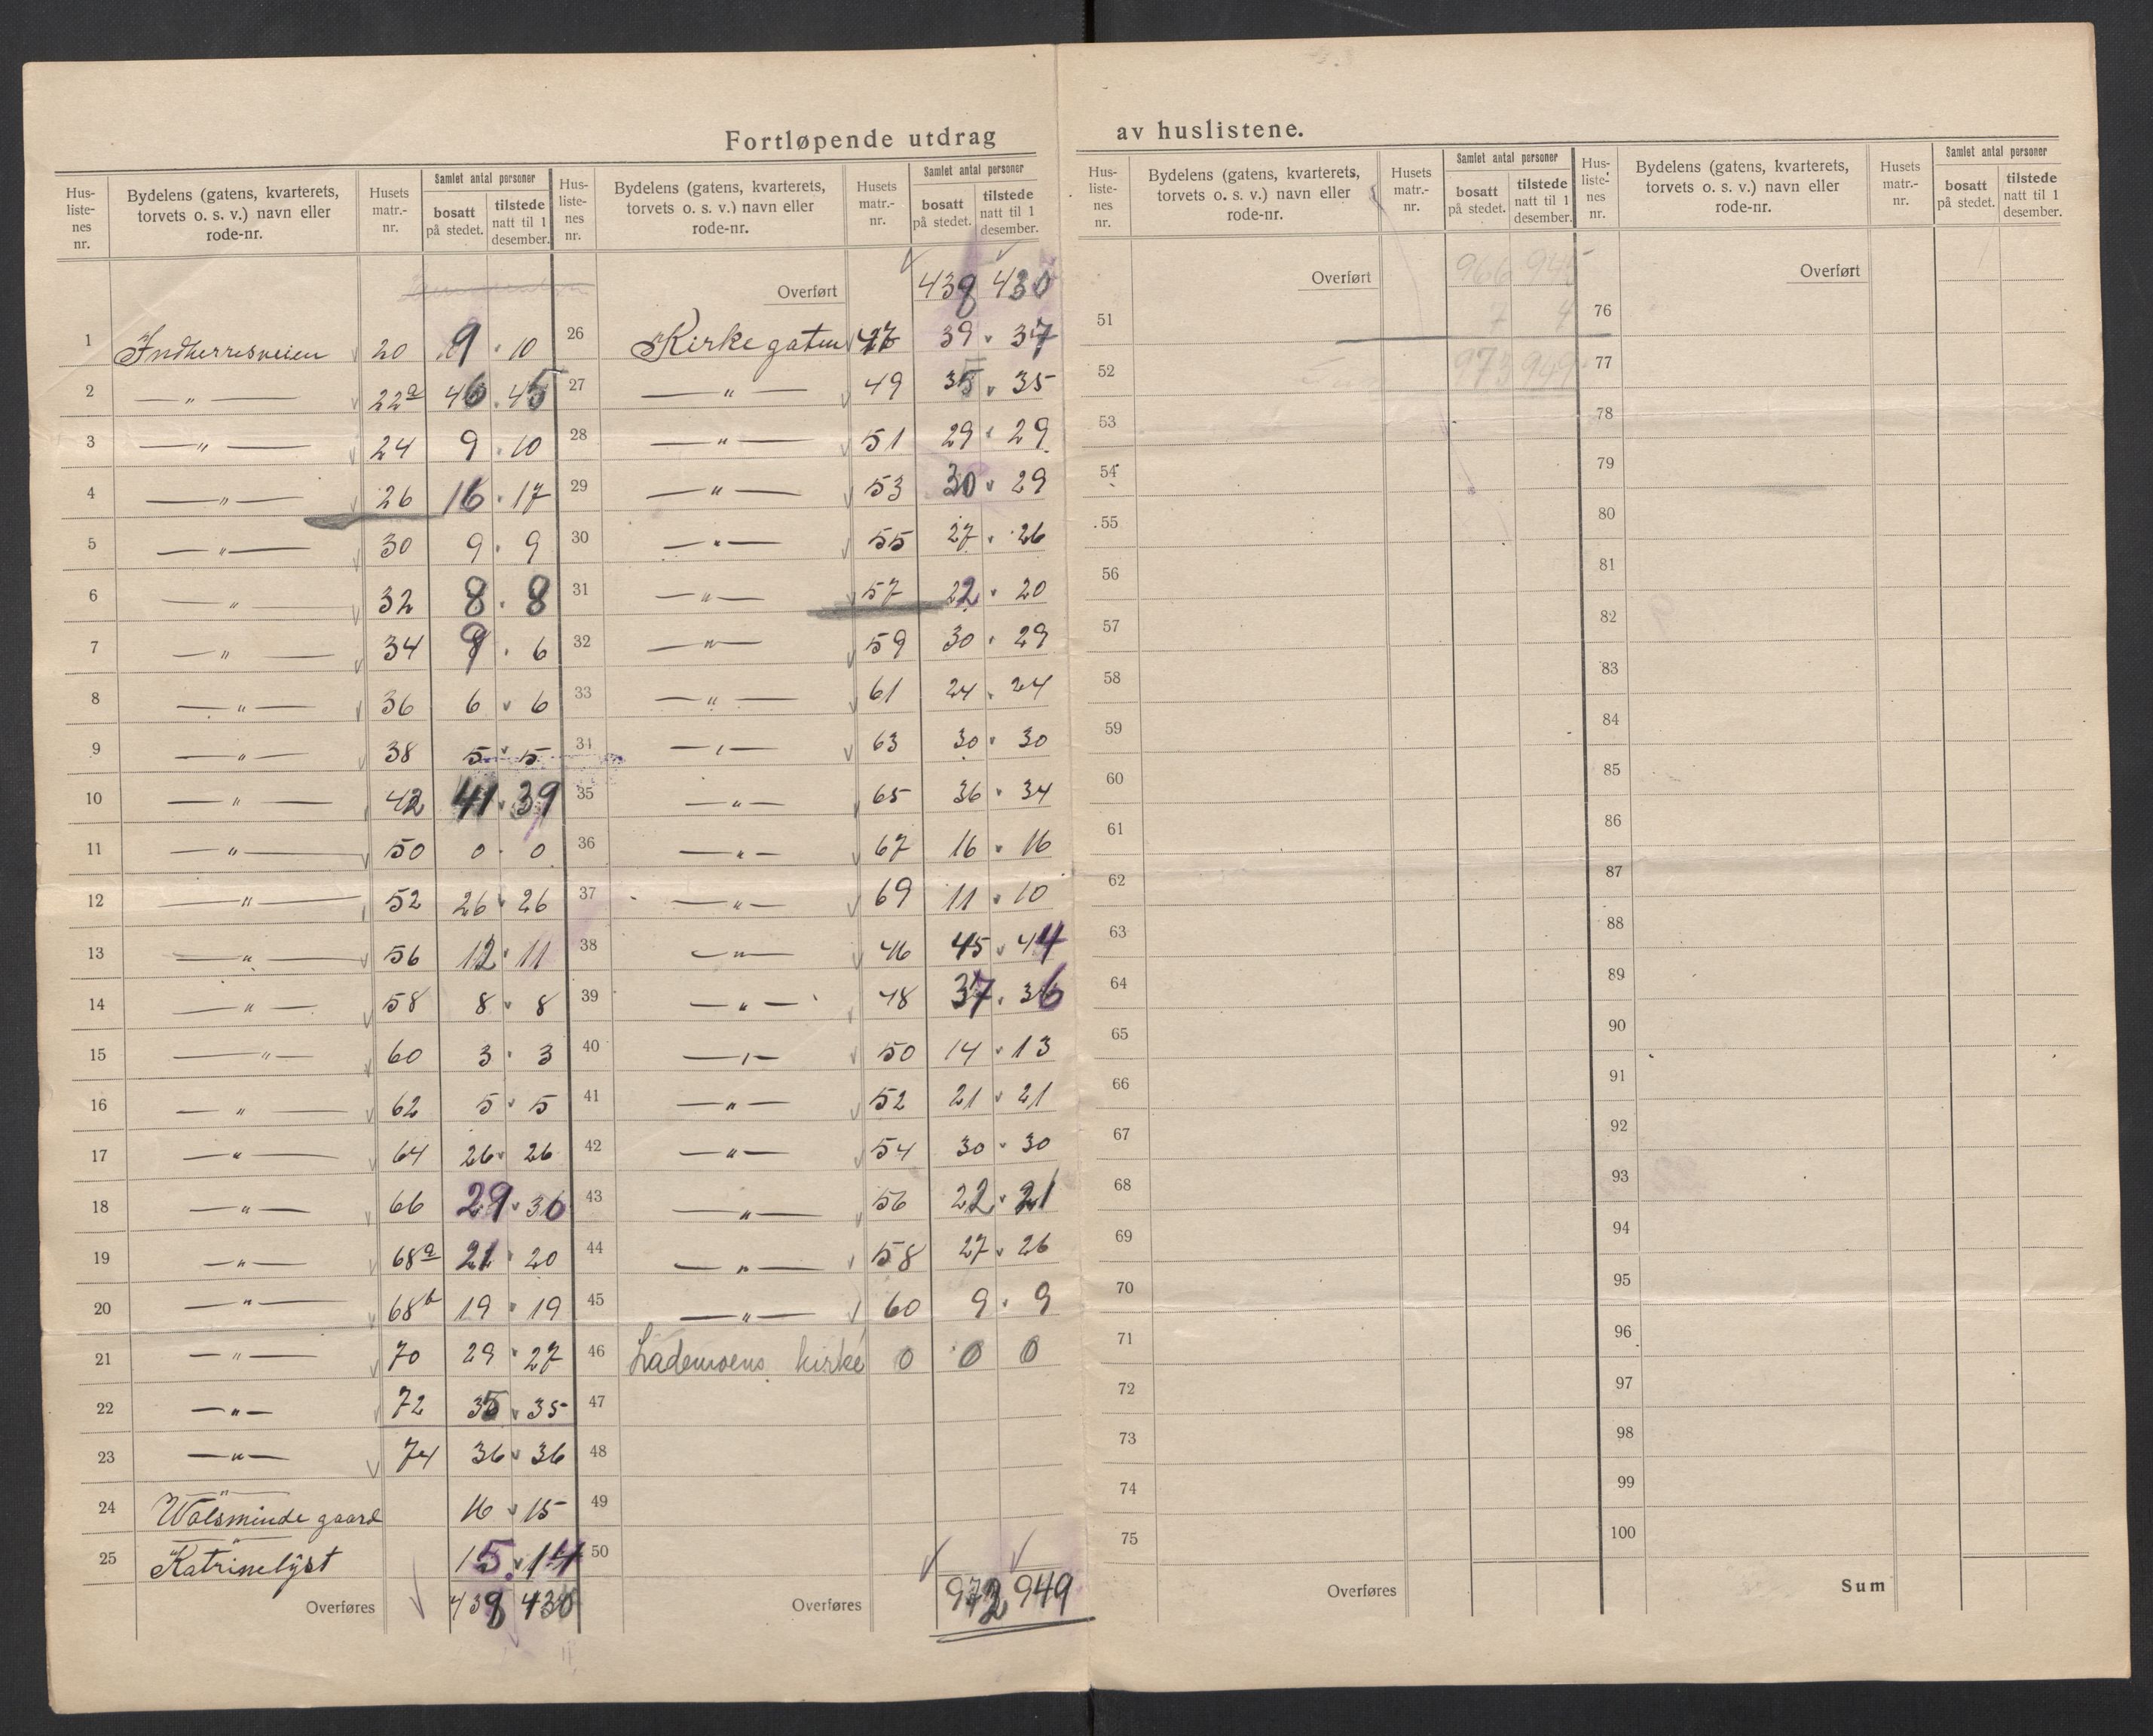 Fortløpende utdrag av huslistene.
Hus-liste-nes nr. | Bydelens (gatens, kvarterets, torvets o. s. v.) navn eller rode-nr. | Husets matr.-nr. | Samlet antal personer | bosatt på stedet. | tilstede natt til 1 desember.
1 Indherresveien 20 9 10
2 —„— 22a 46 45
3 —„— 24 9 10
4 —„— 26 16 17
5 —„— 30 9 9
6 —„— 32 8 8
7 —„— 34 9 6
8 —„— 36 6 6
9 —„— 38 5 5
10 —„— 42 41 39
11 —„— 50 0 0
12 —„— 52 26 26
13 —„— 56 12 11
14 —„— 58 8 8
15 —„— 60 3 3
16 —„— 62 5 5
17 —„— 64 26 26
18 —„— 66 29 30
19 —„— 68a 21 20
20 —„— 68b 19 19
21 —„— 70 29 27
22 —„— 72 35 35
23 —„— 74 36 36
24 —„— Wolsminde gaard 16 15
25 —„— Katrinelyst 15 14
Overføres 438 430
Hus-liste-nes nr. | Bydelens (gatens, kvarterets, torvets o. s. v.) navn eller rode-nr. | Husets matr.-nr. | Samlet antal personer | bosatt på stedet. | tilstede natt til 1 desember.
Overført 438 430
26 Kirkegaten 47 39 37
27 —„— 49 35 35
28 —„— 51 29 29
29 —„— 53 30 29
30 —„— 55 27 26
31 —„— 57 22 20
32 —„— 59 30 29
33 —„— 61 24 24
34 —„— 63 30 30
35 —„— 65 36 34
36 —„— 67 16 16
37 —„— 69 11 10
38 —„— 46 45 44
39 —„— 48 37 36
40 —„— 50 14 13
41 —„— 52 21 21
42 —„— 54 30 30
43 —„— 56 22 21
44 —„— 58 27 26
45 —„— 60 9 9
46 Lademoens kirke 0 0 0
47
48
49
50
Overføres 972 949
Hus-liste-nes nr. | Bydelens (gatens, kvarterets, torvets o. s. v.) navn eller rode-nr. | Husets matr.-nr. | Samlet antal personer | bosatt på stedet. | tilstede natt til 1 desember.
Overført 966 945
51 7 4
52 973 949
53
54
55
56
57
58
59
60
61
62
63
64
65
66
67
68
69
70
71
72
73
74
75
Overføres
Hus-liste-nes nr. | Bydelens (gatens, kvarterets, torvets o. s. v.) navn eller rode-nr. | Husets matr.-nr. | Samlet antal personer | bosatt på stedet. | tilstede natt til 1 desember.
Overført
76
77
78
79
80
81
82
83
84
85
86
87
88
89
90
91
92
93
94
95
96
97
98
99
100
Sum